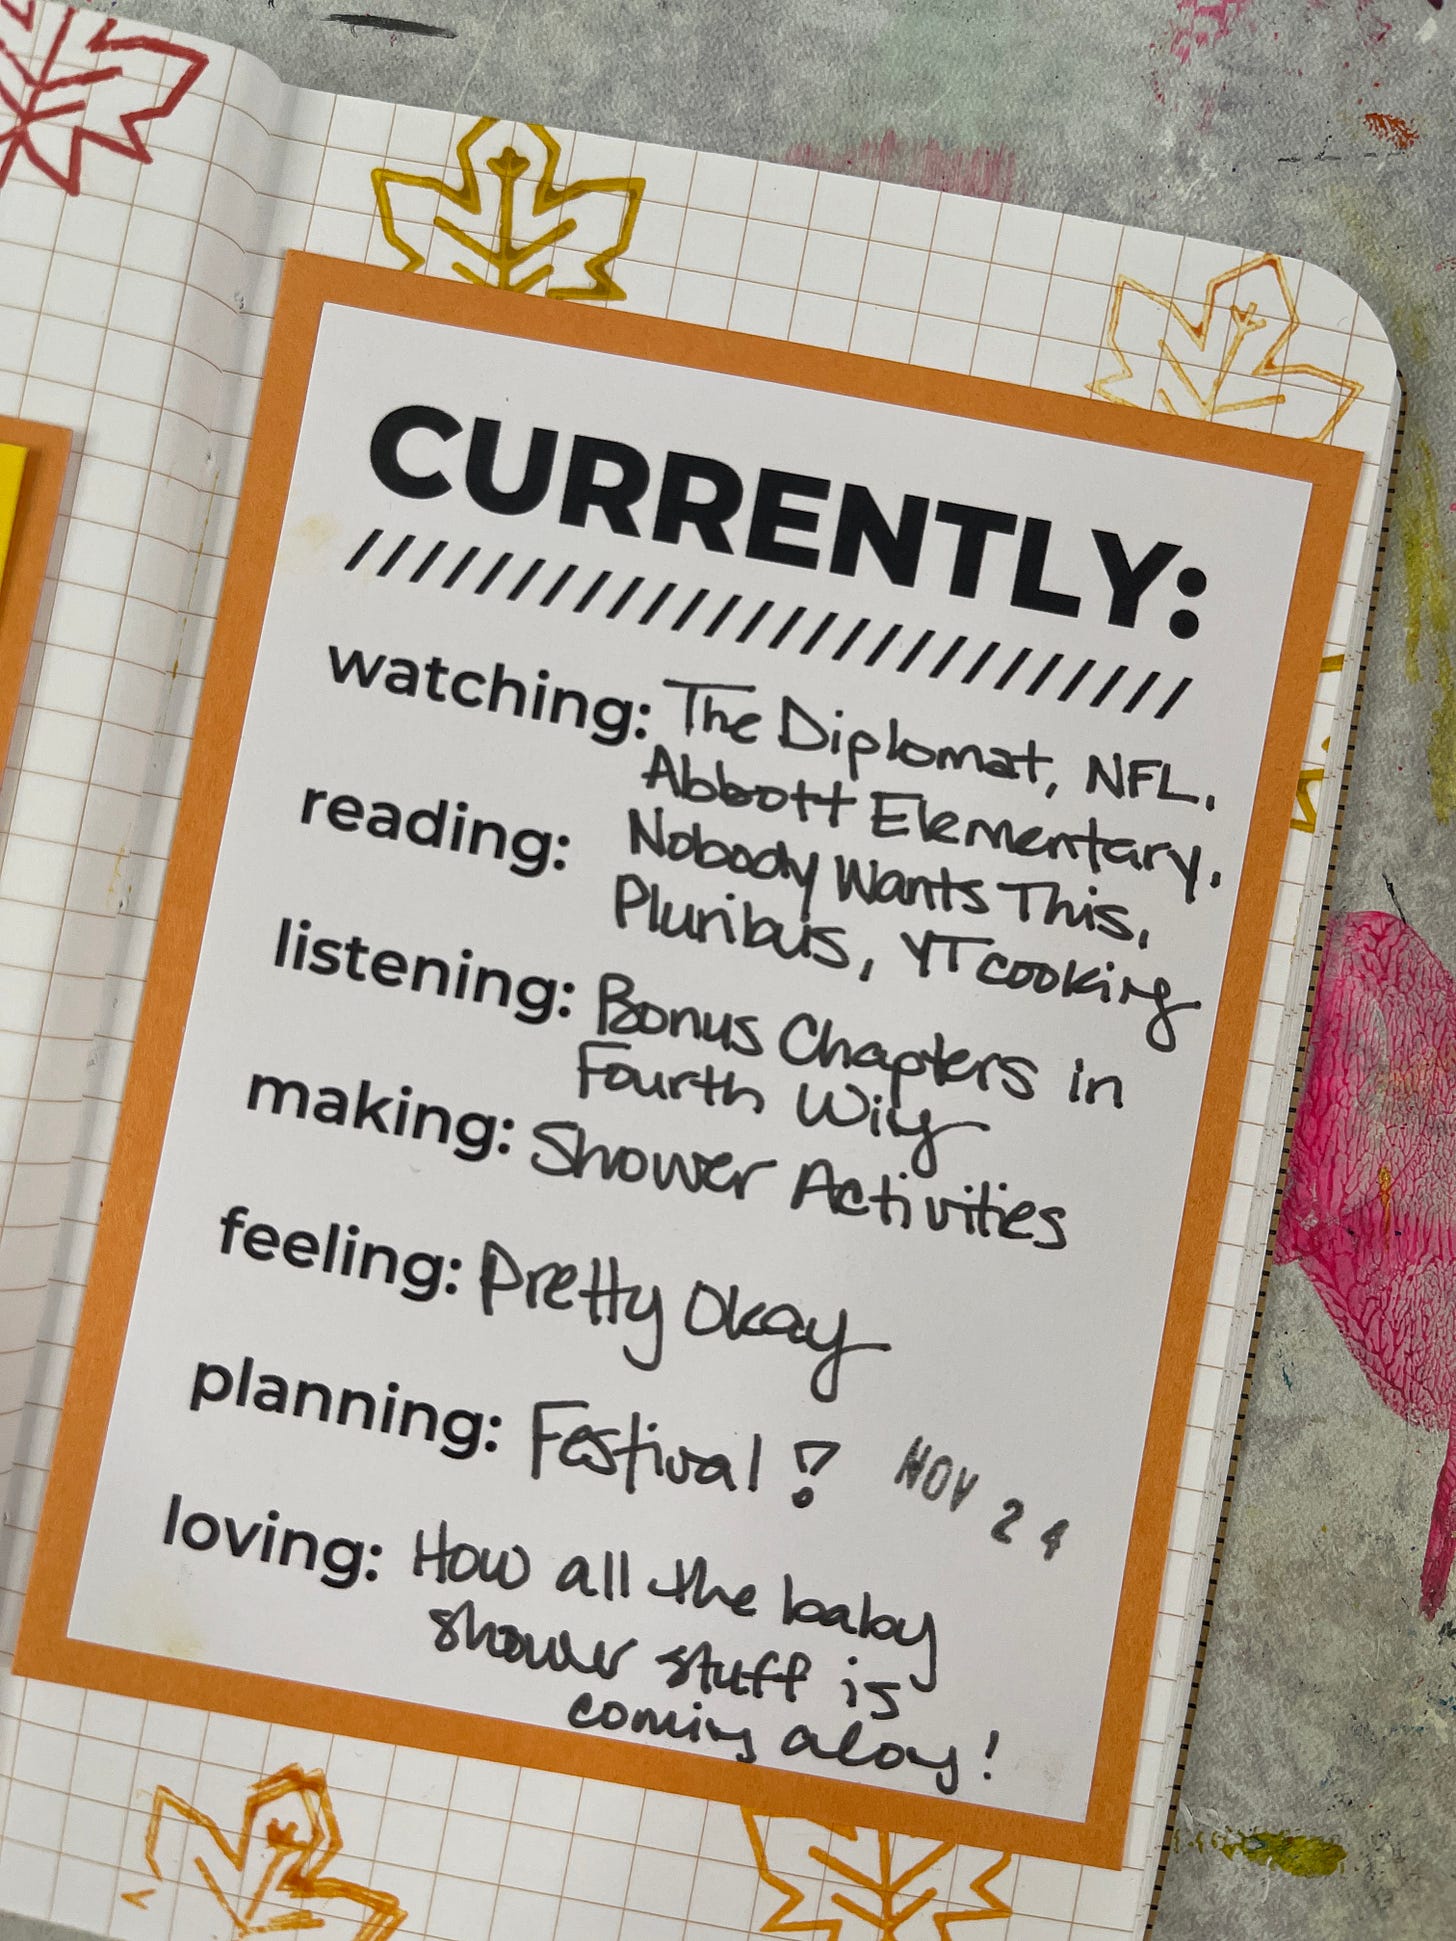 CURRENTLY:
////////////////////////////
watching: The Diplomat, NFL.
Abbott Elementary.
reading: Nobody Wants This.
Pluribus, YT cooking
listening: Bonus Chapters in
Fourth Wig
making: Shower Activities
feeling: Pretty Okay
planning: Festival!?
NOV 24
loving: How all the baby
shower stuff is
coming along!